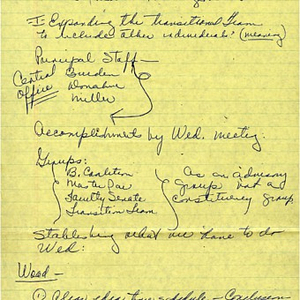 I Expanding the transitional team
to include other individuals? (meaning)
Principal Staff—
Central Burden
Office Donahue
Miller
Accomplishment by Wed. meeting.
Groups:
B. Carleton
Master Plan
Faulty Senate
Transition Team
as an advisory
group not a
constituency group
Stablishing what we have to do
Wed:
Weed—
schedule